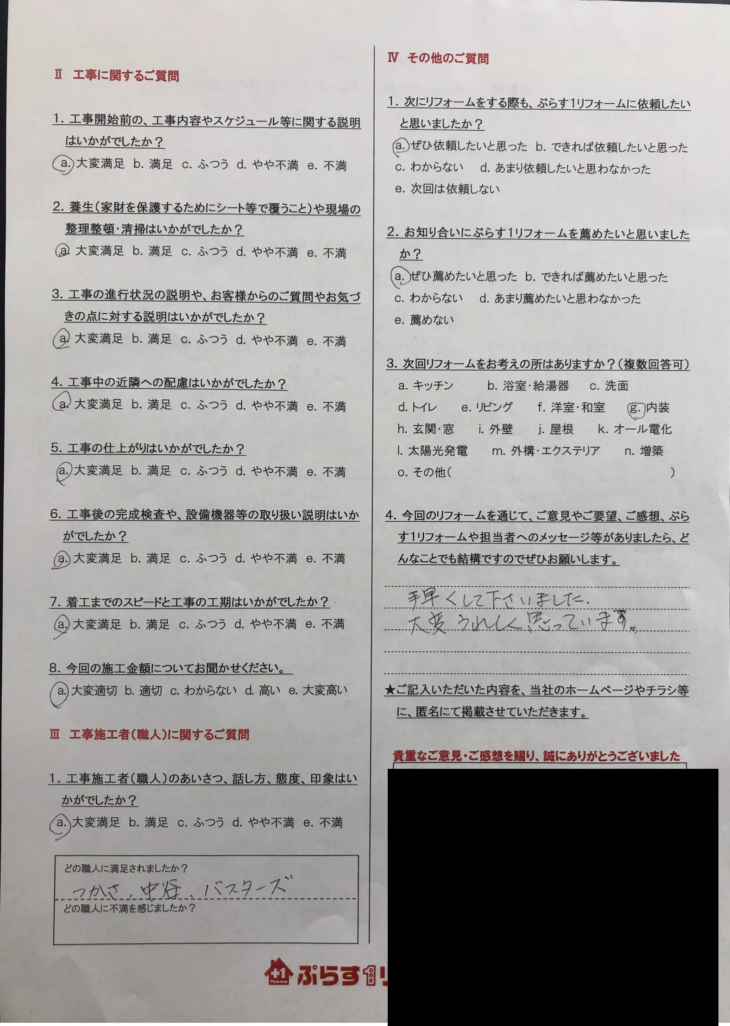 Ⅱ 工事に関するご質問
1. 工事開始前の、工事内容やスケジュール等に関する説明
はいかがでしたか?
a. 大変満足 b. 満足 c. ふつう d. やや不満 e. 不満
2. 養生(家財を保護するためにシート等で覆うこと)や現場の
整理整頓・清掃はいかがでしたか?
a. 大変満足 b. 満足 c. ふつう d. やや不満 e. 不満
3. 工事の進行状況の説明や、お客様からのご質問やお気づ
きの点に対する説明はいかがでしたか?
a. 大変満足 b. 満足 c. ふつう d. やや不満 e. 不満
4. 工事中の近隣への配慮はいかがでしたか?
a. 大変満足 b. 満足 c. ふつう d. やや不満 e. 不満
5. 工事の仕上がりはいかがでしたか?
a. 大変満足 b. 満足 c. ふつう d. やや不満 e. 不満
6. 工事後の完成検査や、設備機器等の取り扱い説明はいか
がでしたか?
a. 大変満足 b. 満足 c. ふつう d. やや不満 e. 不満
7. 着工までのスピードと工事の工期はいかがでしたか?
a. 大変満足 b. 満足 c. ふつう d. やや不満 e. 不満
8. 今回の施工金額についてお聞かせください。
a. 大変適切 b. 適切 c. わからない d. 高い e. 大変高い
Ⅲ 工事施工者(職人)に関するご質問
1. 工事施工者(職人)のあいさつ、話し方、態度、印象はい
かがでしたか?
a. 大変満足 b. 満足 c. ふつう d. やや不満 e. 不満
どの職人に満足されましたか?
つかさ、中谷、バスターズ
どの職人に不満を感じましたか?
Ⅳ その他のご質問
1. 次にリフォームをする際も、ぷらす1リフォームに依頼したい
と思いましたか?
a. ぜひ依頼したいと思った b. できれば依頼したいと思った
c. わからない d. あまり依頼したいと思わなかった
e. 次回は依頼しない
2. お知り合いにぷらす1リフォームを薦めたいと思いました
か?
a. ぜひ薦めたいと思った b. できれば薦めたいと思った
c. わからない d. あまり薦めたいと思わなかった
e. 薦めない
3. 次回リフォームをお考えの所はありますか?(複数回答可)
a. キッチン b. 浴室・給湯器 c. 洗面
d. トイレ e. リビング f. 洋室・和室 g. 内装
h. 玄関・窓 i. 外壁 j. 屋根 k. オール電化
l. 太陽光発電 m. 外構・エクステリア n. 増築
o. その他( )
4. 今回のリフォームを通じて、ご意見やご要望、ご感想、ぷら
す1リフォームや担当者へのメッセージ等がありましたら、ど
んなことでも結構ですのでぜひお願いします。
手早くして下さいました.
大変うれしく思っています。
★ご記入いただいた内容を、当社のホームページやチラシ等
に、匿名にて掲載させていただきます。
貴重なご意見・ご感想を賜り、誠にありがとうございました
+1 ぷらす1リ